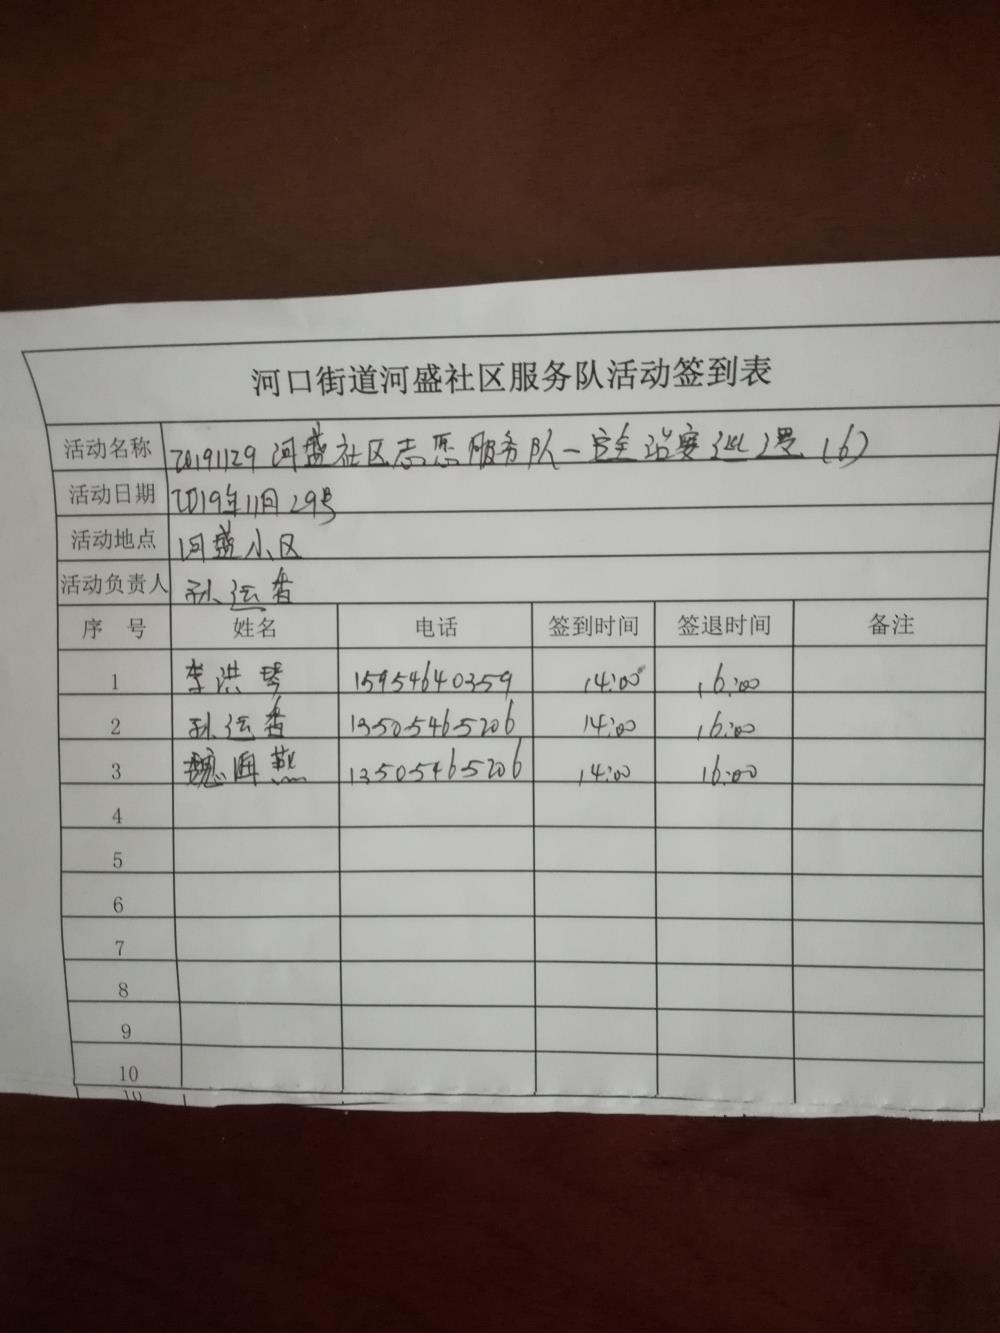 河口街道河盛社区服务队活动签到表
活动名称 20191129河盛社区志愿服务队一安全治安巡逻(6)
活动日期 2019年11月29号
活动地点 河盛小区
活动负责人 孙运香
序号 姓名 电话 签到时间 签退时间 备注
1 李洪琴 15954640359 14:00 16:00
2 孙运香 13505465206 14:00 16:00
3 魏海燕 13505465206 14:00 16:00
4
5
6
7
8
9
10